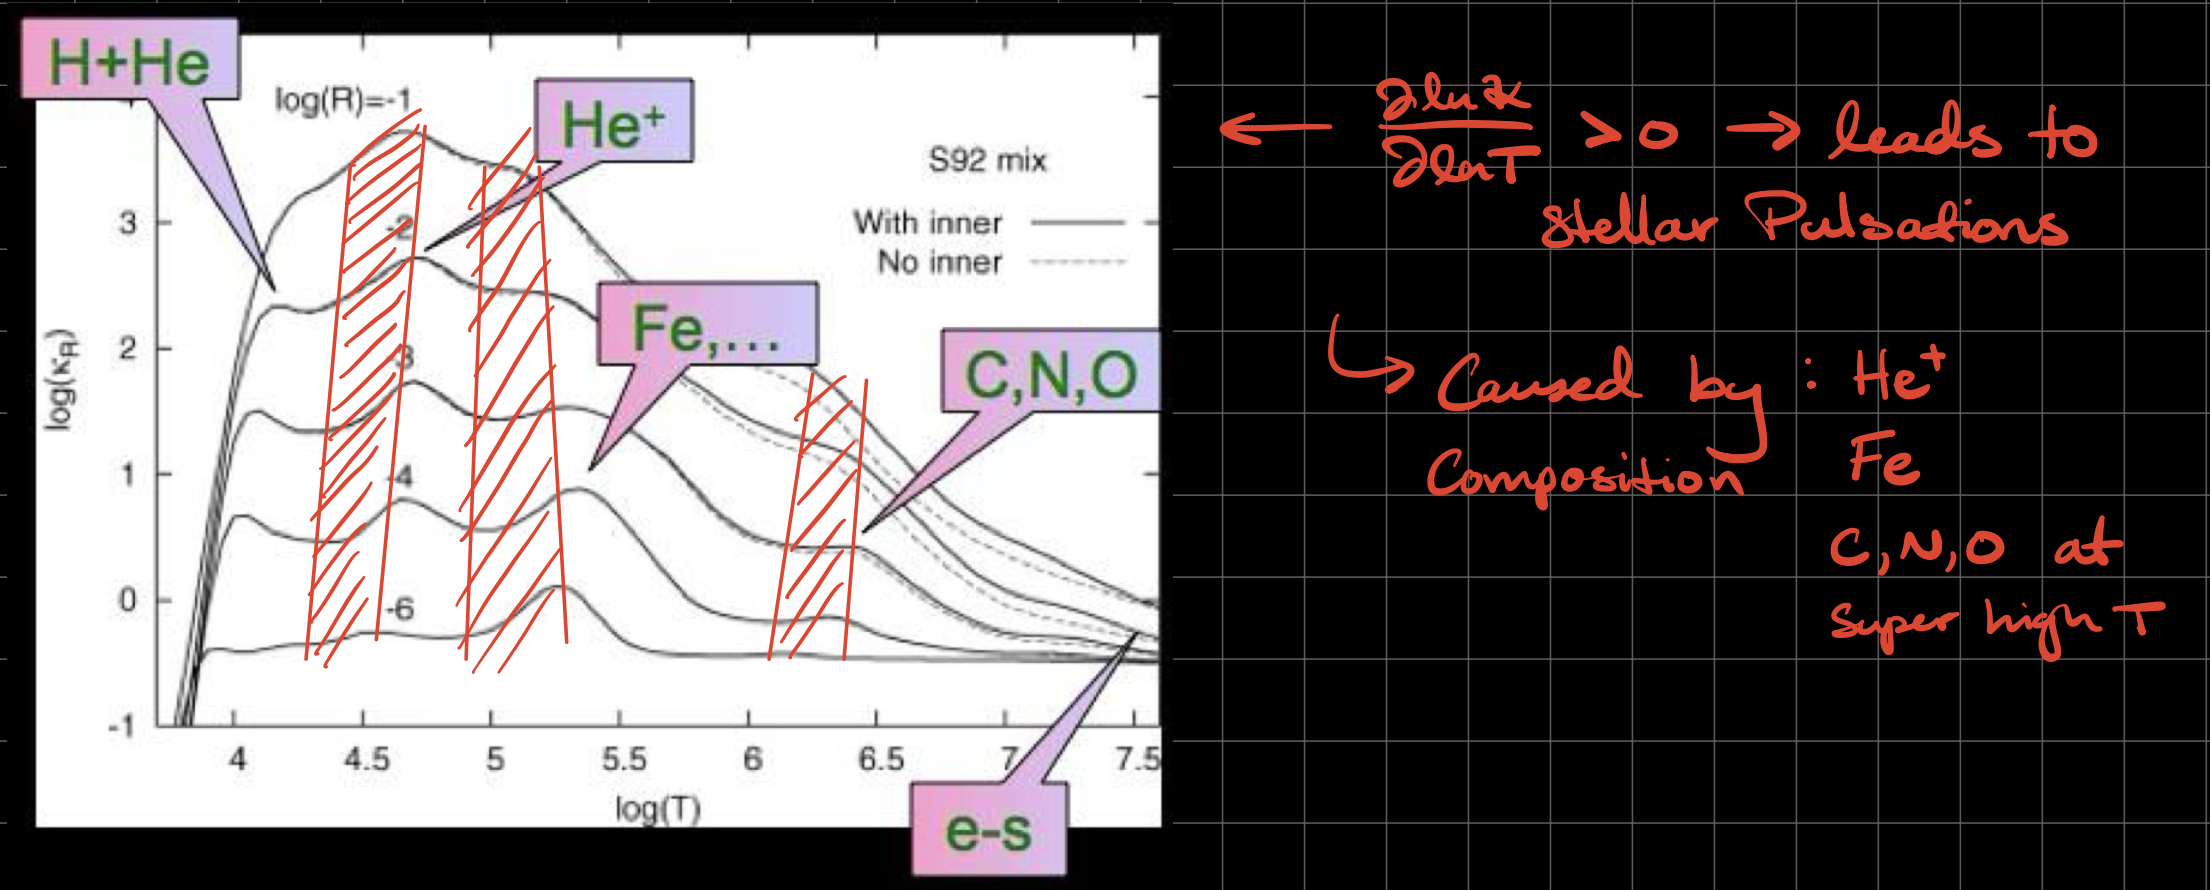 H+He
log(R)=-1
He⁺
S92 mix
With inner
No inner
Fe,...
C,N,O
e-s
-2
-3
-4
-6
log(κR)
3
2
1
0
-1
4 4.5 5 5.5 6 6.5 7 7.5
log(T)
← ∂lnκ/∂lnT > 0 → leads to
Stellar Pulsations
↳ Caused by : He⁺
Composition Fe
C,N,O at
Super high T